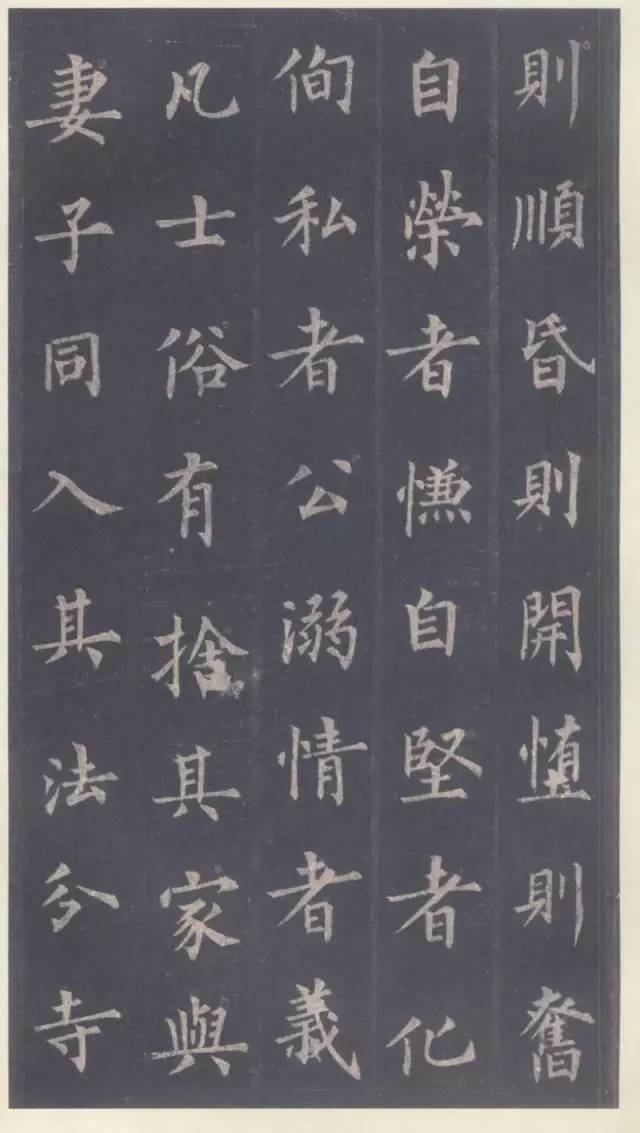 則順昏則開墮則奮
自榮者慊自堅者化
徇私者公溺情者義
凡士俗有捨其家與
妻子同入其法分寺